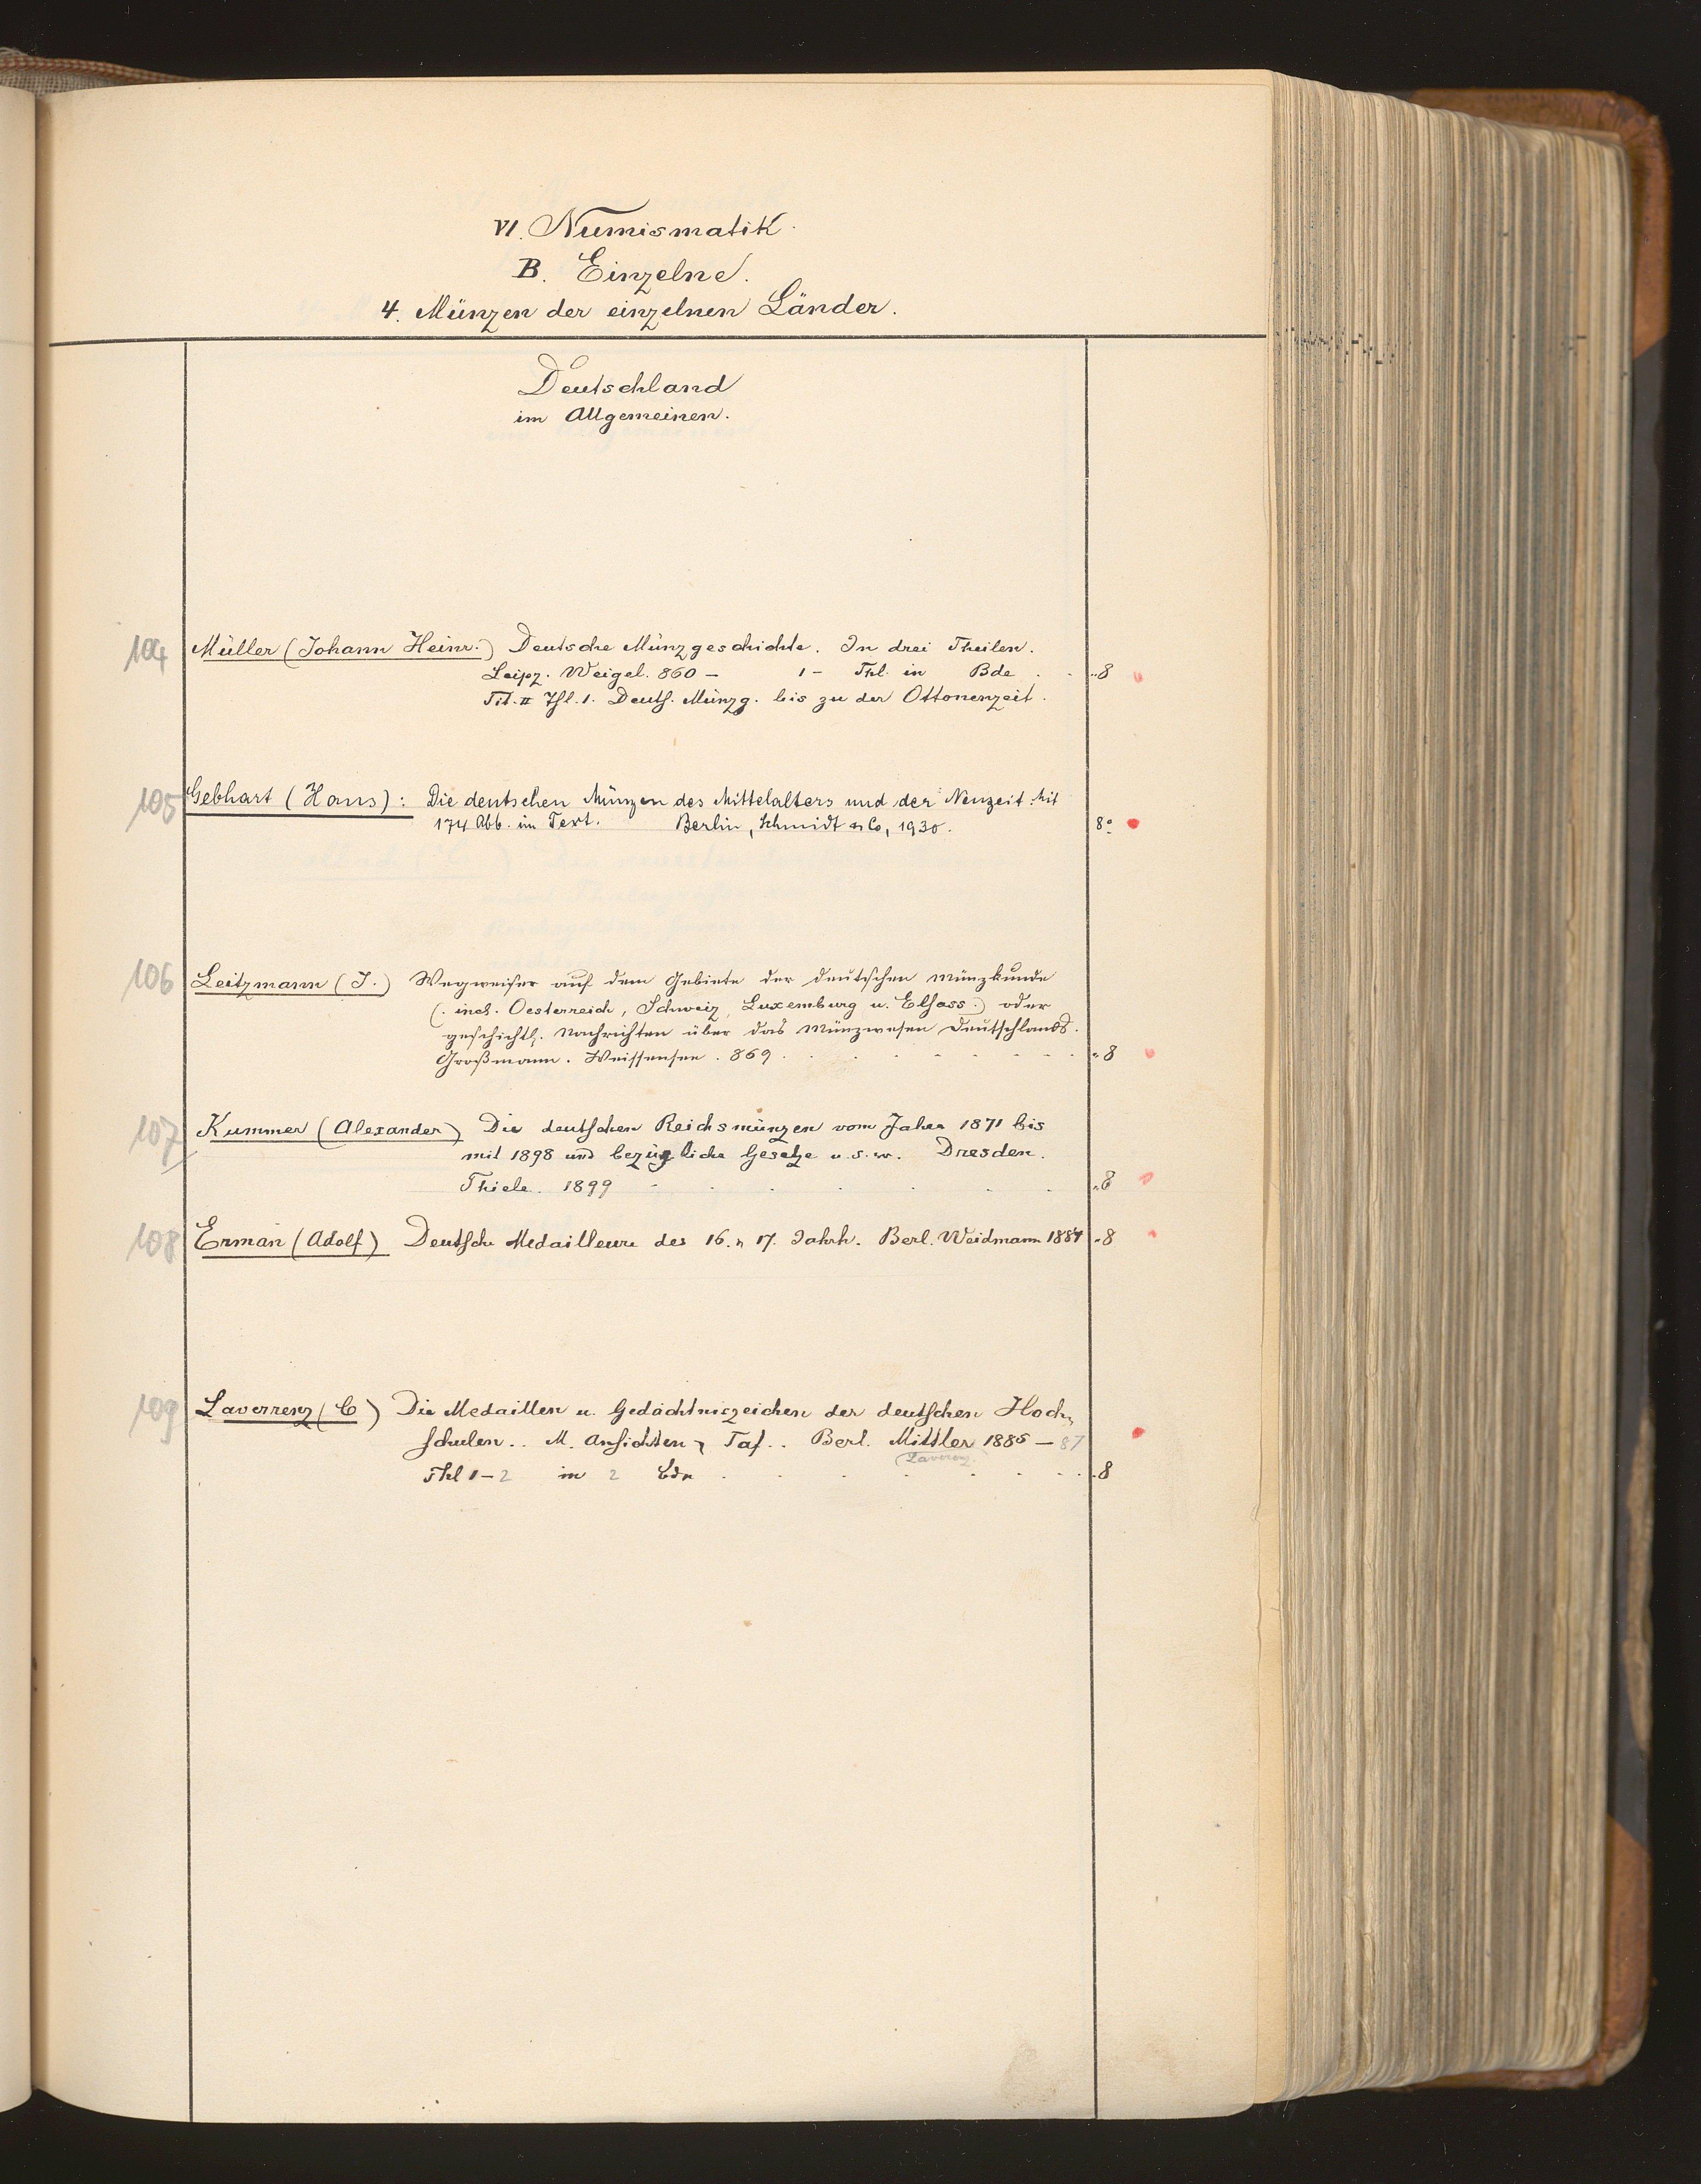 VI. Numismatik.
B. Einzelne.
4. Münzen der einzelnen Länder.
Deutschland
im Allgemeinen.
104 Müller (Johann Heinr.) Deutsche Münzgeschichte. In drei Theilen.
Leipz. Weigel. 860 – 1 – Thl. in Bde . . „8
Tit. II Thl. 1. Deuts. Münzg. bis zu der Ottonenzeit.
105 Gebhart (Hans): Die deutschen Münzen des Mittelalters und der Neuzeit. Mit
174 Abb. im Text. Berlin, Schmidt & Co, 1930. 8°
106 Leitzmann (J.) Wegweiser auf dem Gebiete der deutschen Münzkunde
(. incl. Oesterreich, Schweiz, Luxemburg u. Elsass.) oder
geschichtl. Nachrichten über das Münzwesen Deutschlands.
Großmann. Weissensee. 869 . . . . . . „8
107 Kummer (Alexander) Die deutschen Reichsmünzen vom Jahre 1871 bis
mit 1898 und bezügliche Gesetze u.s.w. Dresden.
Thiele. 1899 . . . . . . . „8
108 Erman (Adolf) Deutsche Medailleure des 16. u 17. Jahrh. Berl. Weidmann 1884 „8
109 Laverrenz (C) Die Medaillen u. Gedächtniszeichen der deutschen Hoch„
schulen.. M. Ansichten u Taf.. Berl. Mittler 1885 – 87
(Laverrenz.)
Thl 1 – 2 in 2 Bdn . . . . . . . . 8